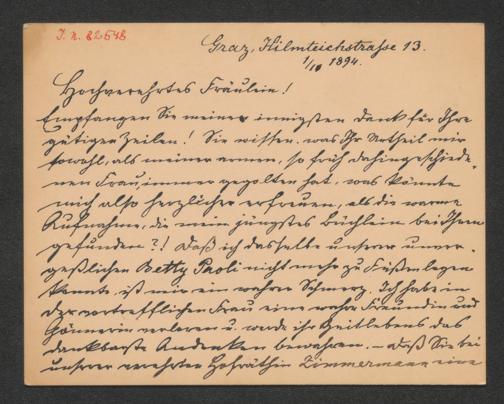 J. N. 82548
Graz, Hilmteichstrasse 13.
1/10 1894.
Hochverehrtes Fräulein!
Empfangen Sie meinen innigsten Dank für Ihre
gütigen Zeilen! Sie wissen, was Ihr Urtheil mir
sowohl, als meiner armen, so früh dahingeschiede-
nen Frau, immer gegolten hat, was könnte
mich also herzlicher erfreuen, als die warme
Aufnahme, die mein jüngstes Büchlein bei Ihnen
gefunden?! Daß ich dasselbe unserer unver-
geßlichen Betty Paoli nicht mehr zu Füßen legen
konnte, ist mir ein wahrer Schmerz. Ich habe in
der vortrefflichen Frau eine wahre Freundin und
Gönnerin verloren u. werde ihr zeitlebens das
dankbarste Andenken bewahren. – Daß Sie bei
unserer verehrten Hofräthin Zimmermann eine